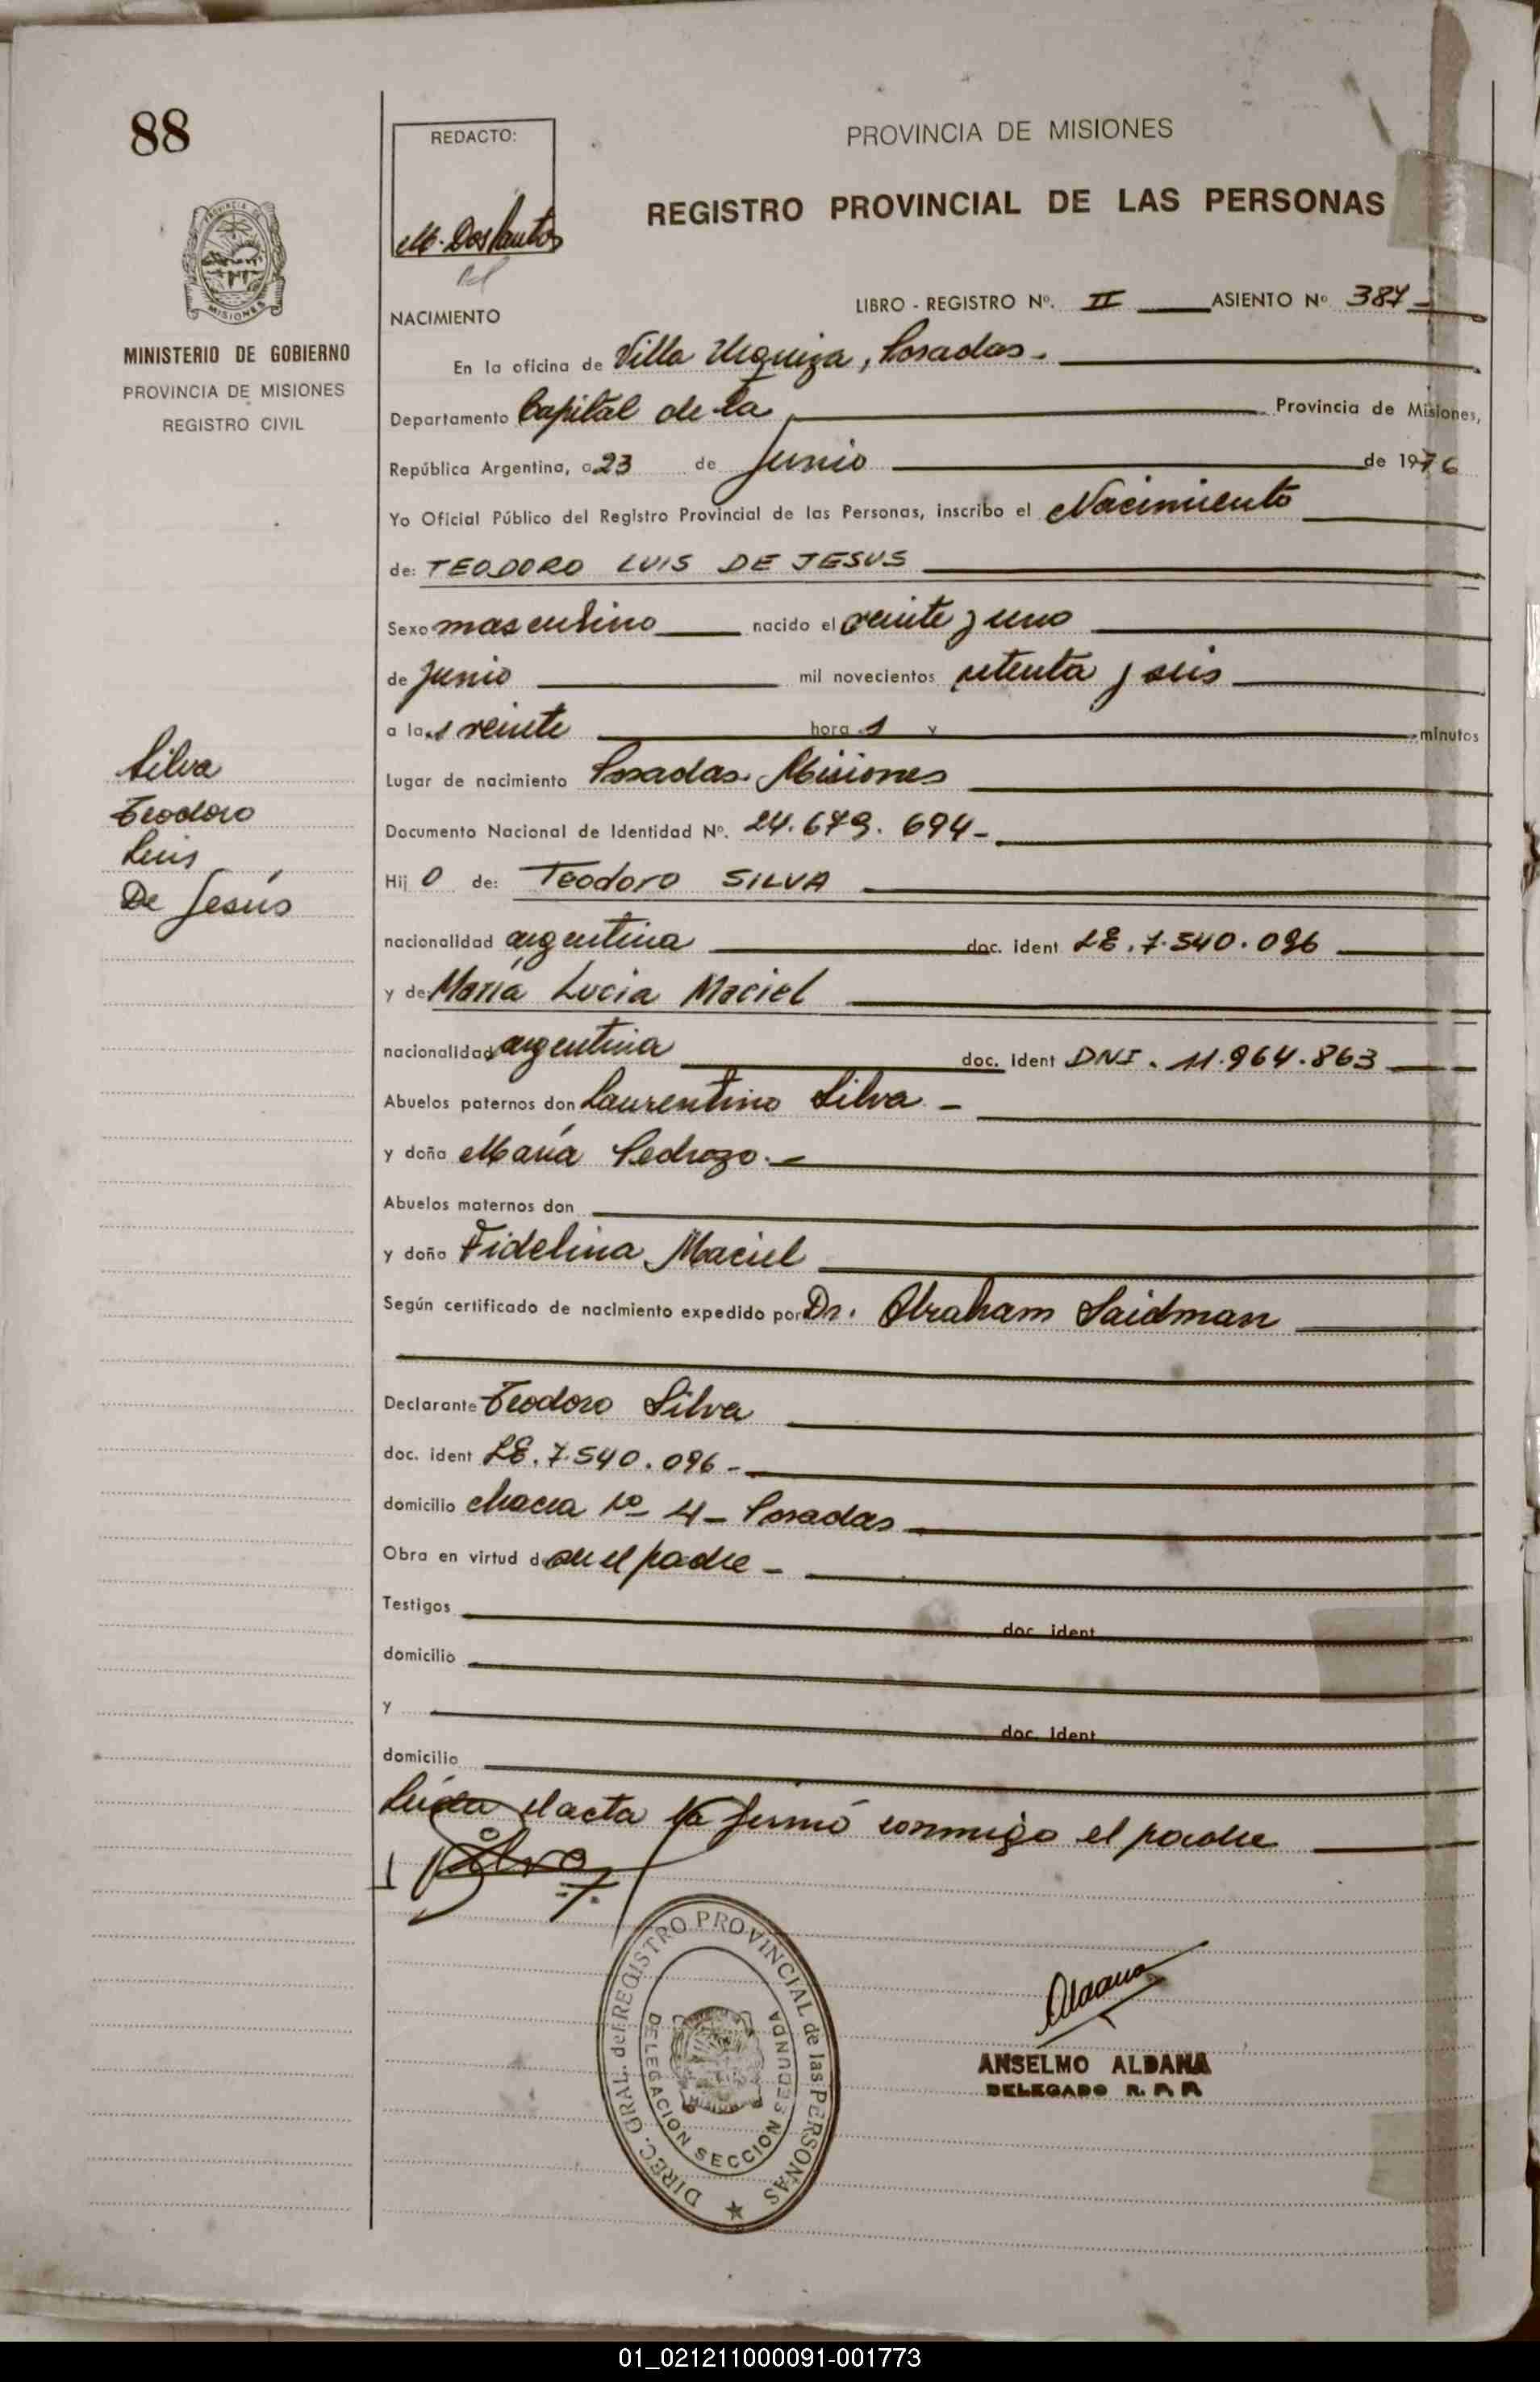 88
REDACTO:
M. Dos Santos
PROVINCIA DE MISIONES
REGISTRO PROVINCIAL DE LAS PERSONAS
PROVINCIA DE
MISIONES
MINISTERIO DE GOBIERNO
PROVINCIA DE MISIONES
REGISTRO CIVIL
NACIMIENTO LIBRO - REGISTRO Nº. II ASIENTO Nº 387-
En la oficina de Villa Urquiza, Posadas-
Departamento Capital de la Provincia de Misiones,
República Argentina, a 23 de Junio de 1976
Yo Oficial Público del Registro Provincial de las Personas, inscribo el Nacimiento
de: TEODORO LUIS DE JESUS
Sexo masculino nacido el veinte y uno
de Junio mil novecientos setenta y seis
a las veinte hora s y minutos
Lugar de nacimiento Posadas. Misiones
Documento Nacional de Identidad Nº. 24.679.694-
Hij o de: Teodoro SILVA
nacionalidad argentina doc. ident LE. 7.540.096
y de María Lucia Maciel
nacionalidad argentina doc. ident DNI. 11.964.863
Abuelos paternos don Laurentino Silva -
y doña María Pedrozo.-
Abuelos maternos don
y doña Fidelina Maciel
Según certificado de nacimiento expedido por Dr. Abraham Saidman
Declarante Teodoro Silva
doc. ident LE. 7.540.096-
domicilio chacra Nº 4- Posadas
Obra en virtud de ser el padre-
Testigos doc. ident
domicilio
y doc. ident
domicilio
Leída el acta la firmó conmigo el padre
Silva
Teodoro
Luis
De Jesús
Silva
DIREC. GRAL. del REGISTRO PROVINCIAL de las PERSONAS
DELEGACION SECCION SEGUNDA
Aldana
ANSELMO ALDANA
DELEGADO R. P. P.
01_021211000091-001773